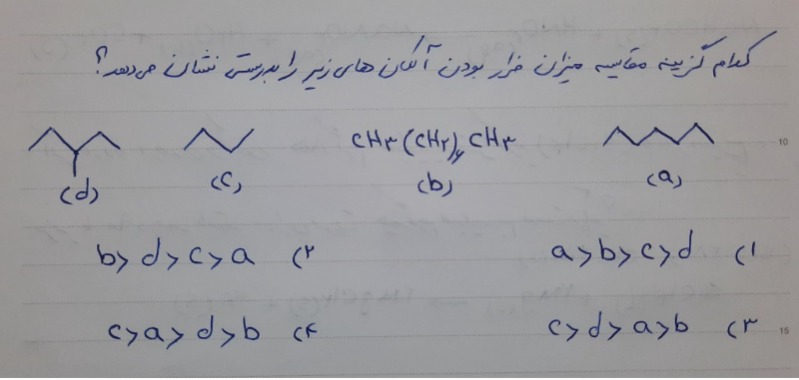 کدام گزینه مقایسه میزان فرار بودن آلکان های زیر را بدرستی نشان می دهد؟
(a) CH۳(CH۲)۶CH۳ (b) (c) (d)
۱) a>b>c>d ۲) b>d>c>a
۳) c>d>a>b ۴) c>a>d>b
10
15